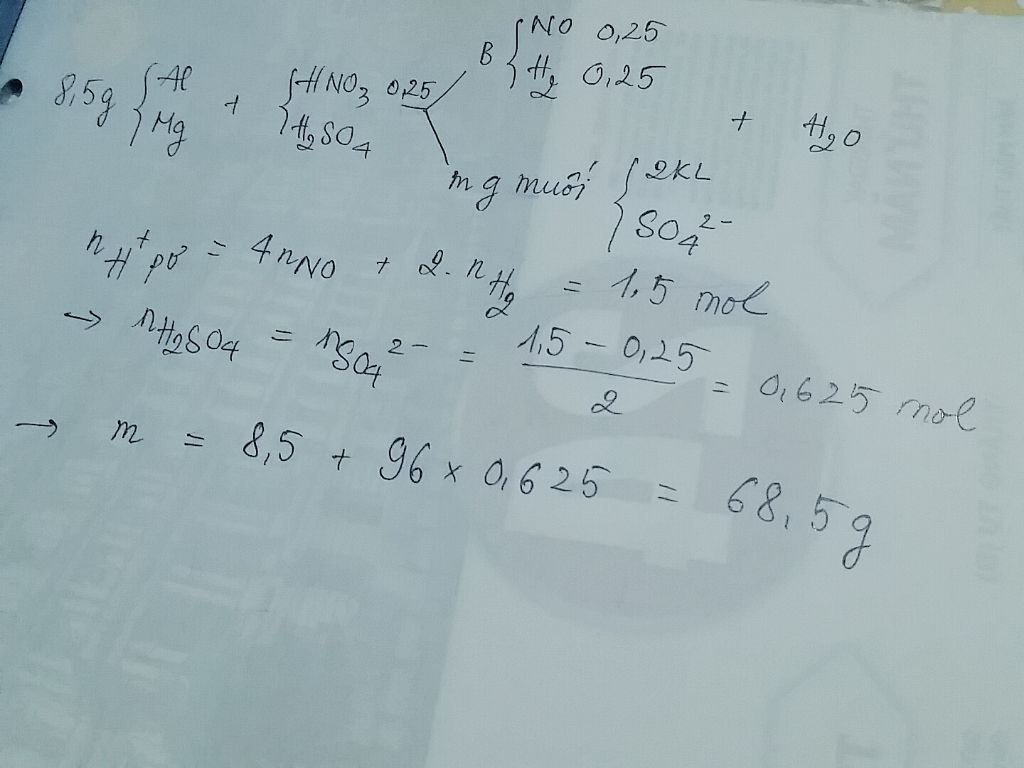 8,5g { Al Mg + { HNO3 0,25 H2SO4 B { NO 0,25 H2 0,25 + H2O
m g muối { 2KL SO4 2-
nH+ pứ = 4nNO + 2.nH2 = 1,5 mol
→ nH2SO4 = nSO4 2- = (1,5 - 0,25)/2 = 0,625 mol
→ m = 8,5 + 96 × 0,625 = 68,5g